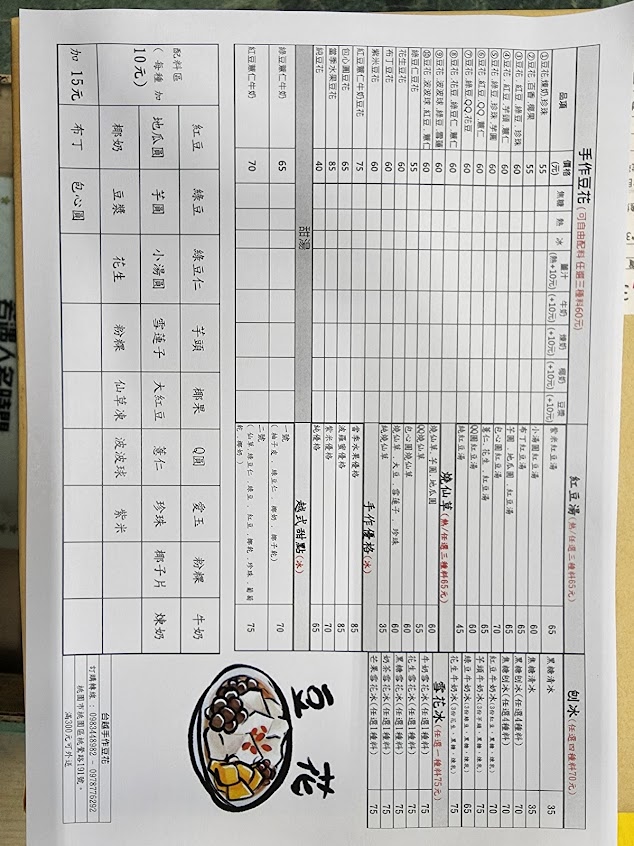 手作豆花(可自由配料 任選三種料60元)
品項 價格(元) 焦糖 熱 冰 薑汁(熱+10元) 牛奶(+10元) 煉奶(+10元) 椰奶(+10元) 豆漿(+10元)
①豆花.煉奶.珍珠 55
②豆花.百香.椰果 55
③豆花.紅豆.綠豆.珍珠 60
④豆花.紅豆.芋頭.薏仁 60
⑤豆花.綠豆.珍珠.芋圓 60
⑥豆花.紅豆.QQ.薏仁 60
⑦豆花.綠豆.QQ.花豆 60
⑧豆花.花豆.綠豆仁.薏仁 60
⑨豆花.波波球.綠豆.雪蓮 60
⑩豆花.波波球.紅豆.薏仁 60
綠豆仁豆花 55
花生豆花 60
布丁豆花 60
紫米豆花 60
紅豆薏仁牛奶豆花 75
包心圓豆花 65
當季水果豆花 85
純豆花 40
甜湯
綠豆薏仁牛奶 65
紅豆薏仁牛奶 70
紅豆湯(熱/任選三種料65元)
紫米紅豆湯 65
小湯圓紅豆湯 60
布丁紅豆湯 65
芋圓.地瓜圓.紅豆湯 65
包心圓紅豆湯 70
薏仁.花生.紅豆湯 65
QQ圓紅豆湯 60
純紅豆湯 45
燒仙草(熱/任選三種料65元)
燒仙草.芋圓.地瓜圓 60
QQ燒仙草 55
包心圓燒仙草 60
燒仙草.大豆.雪蓮子.珍珠 60
純燒仙草 35
手作優格(冰)
當季水果優格 85
波羅蜜優格 85
紫米優格 70
純優格 65
越式甜點(冰)
一號
(柚子皮、綠豆仁、椰奶、椰子乾) 70
二號
(仙草.綠豆仁、綠豆、紅豆.椰乾.珍珠、葡萄乾、椰奶) 75
刨冰(任選四種料70元)
黑糖清冰 35
焦糖清冰 35
黑糖刨冰(任選4種料) 70
焦糖刨冰(任選4種料) 70
紅豆牛奶冰 70
芋頭牛奶冰 75
綠豆牛奶冰 65
花生牛奶冰 75
雪花冰(任選一種料75元)
牛奶雪花冰(任選1種料) 75
花生雪花冰(任選1種料) 75
黑糖雪花冰(任選1種料) 75
奶茶雪花冰(任選1種料) 75
芒果雪花冰(任選1種料) 75
配料區
(每種加10元)
紅豆 綠豆 綠豆仁 芋頭 椰果 Q圓 愛玉 粉粿 牛奶
地瓜圓 芋圓 小湯圓 雪蓮子 大紅豆 薏仁 珍珠 椰子片 煉奶
椰奶 豆漿 花生 粉粿 仙草凍 波波球 紫米
加 15元 布丁 包心圓
豆花
台越手作豆花
訂購專線: 0983448982 – 0978776292
桃園市桃園區桃鶯路191號。
滿300元可外送